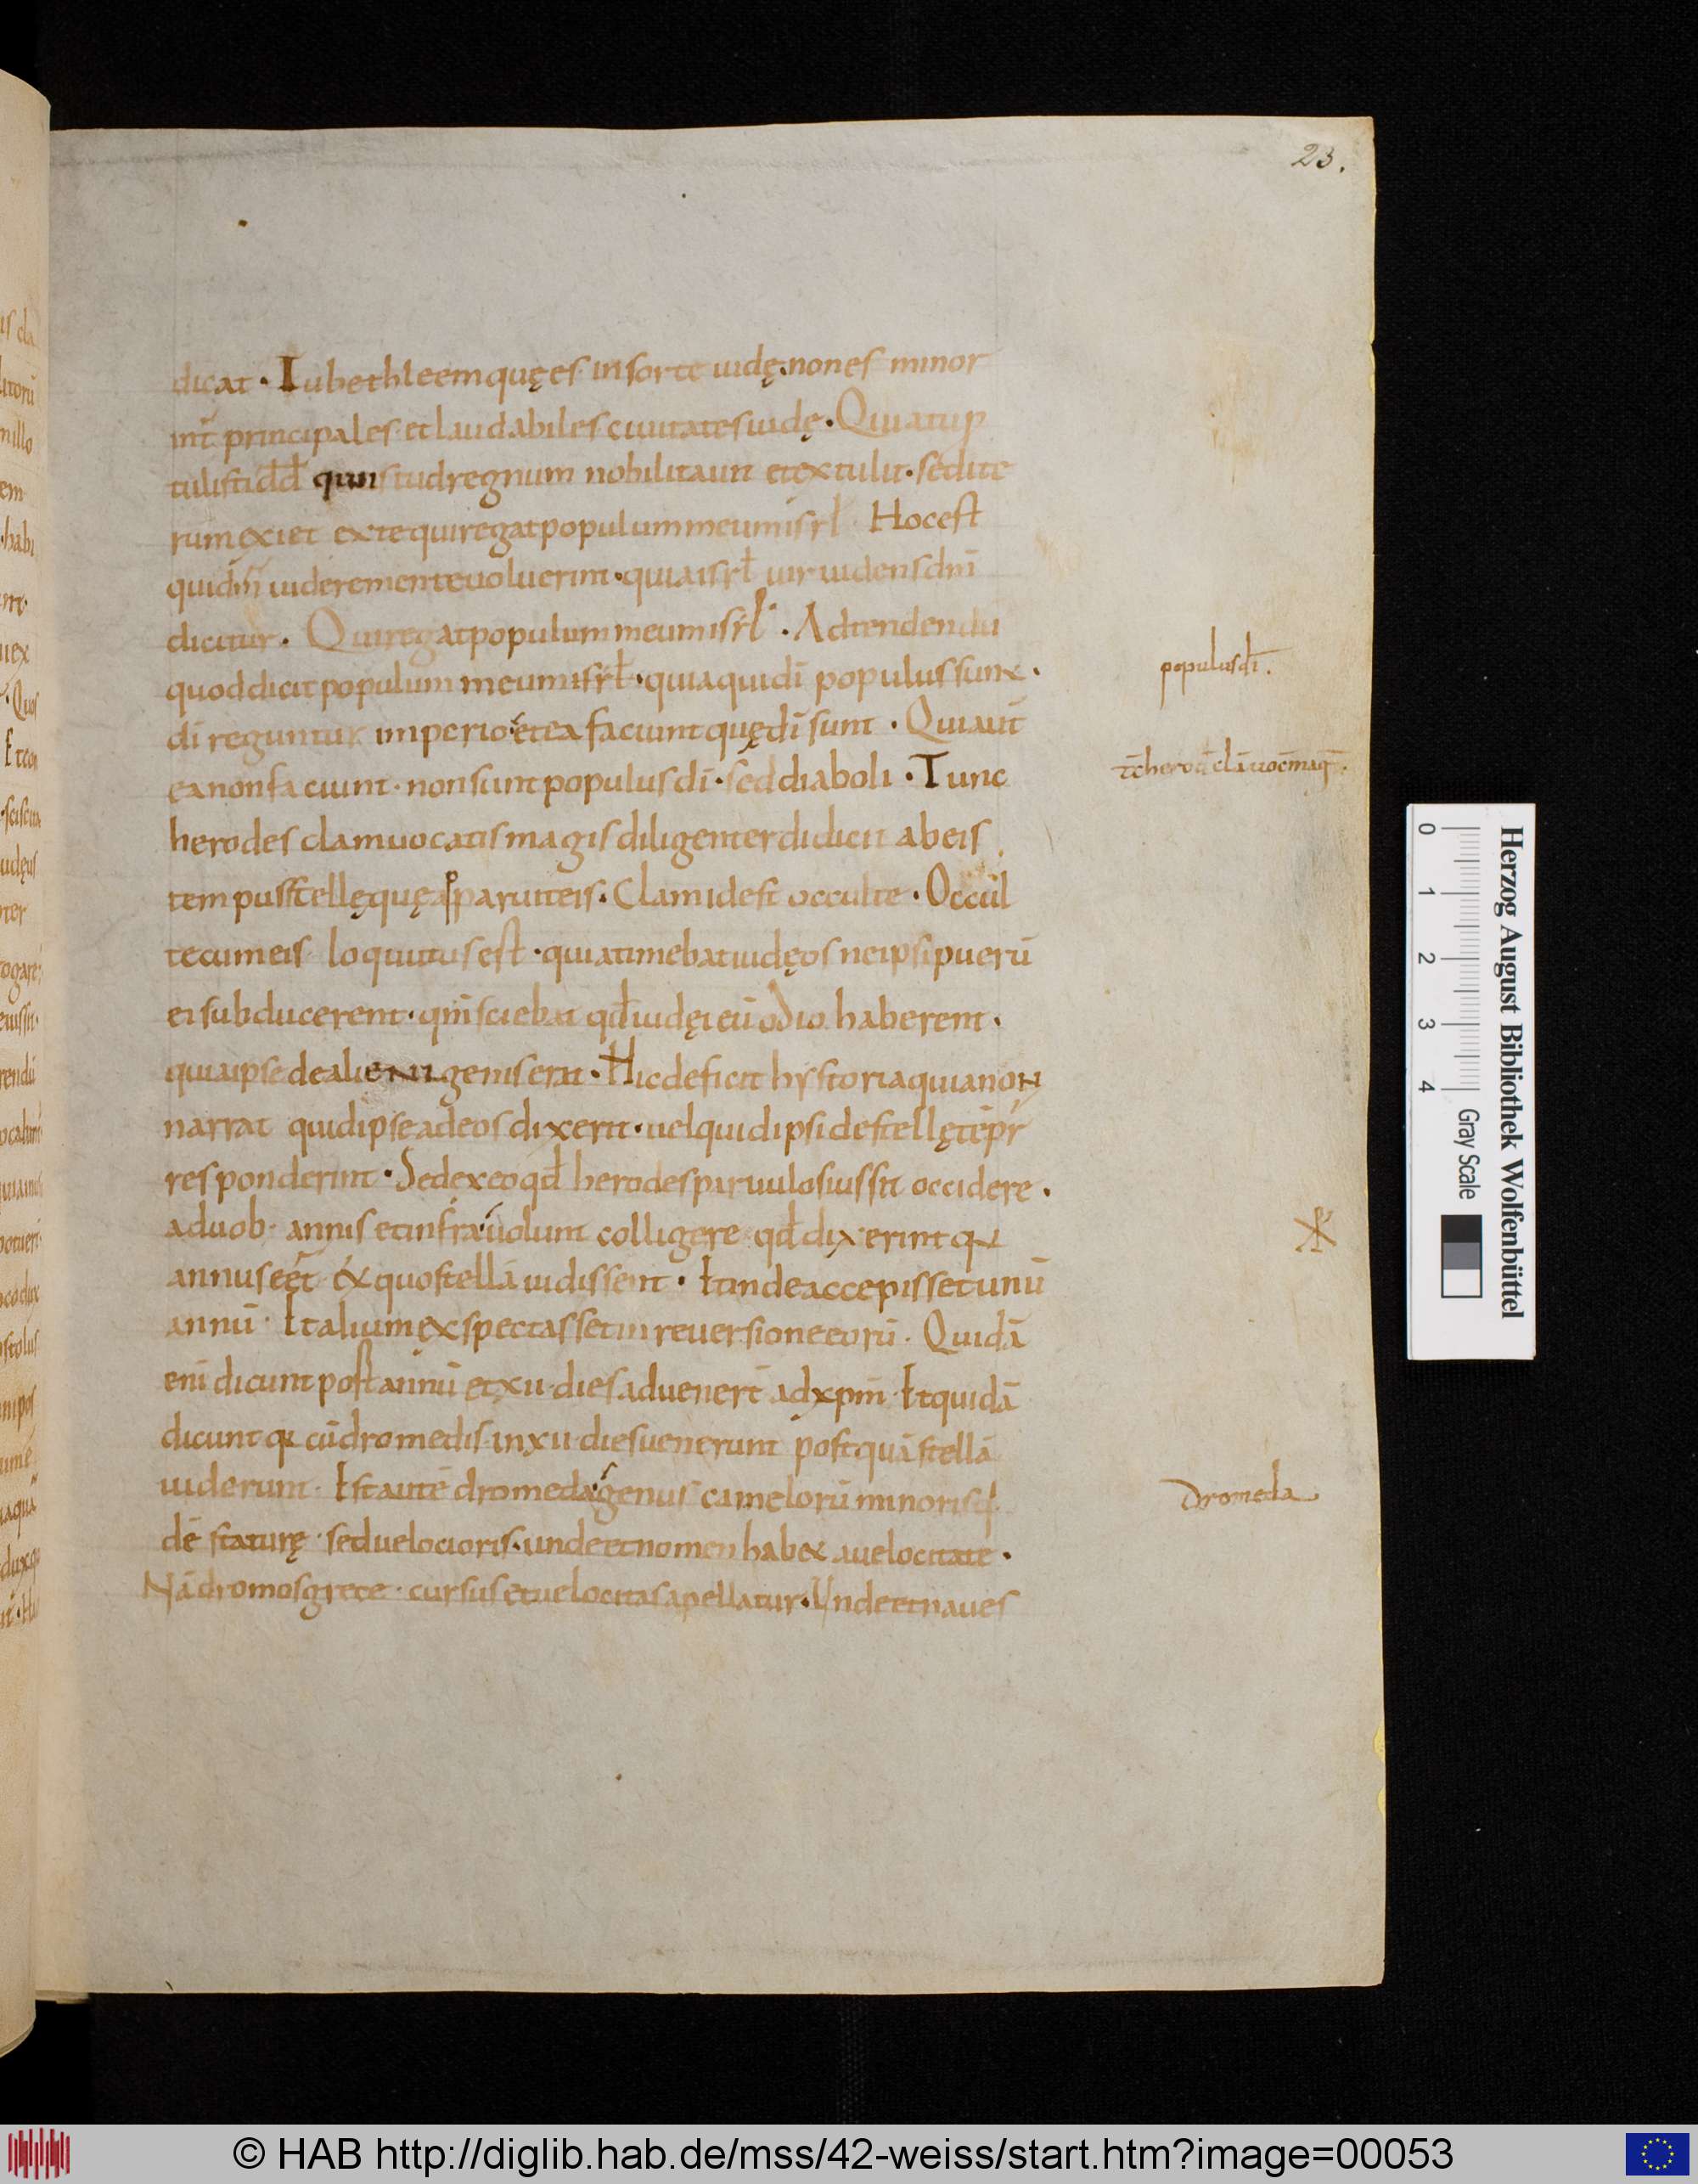 23.
dicat · Iu bethleem quę es in sorte iudę · non es minor
int̄ principales et laudabiles ciuitates iudę · Quia tu p
tulisti dd̄ qui istud regnum nobilitauit et extulit · sed ite
rum exiet ex te qui regat populum meum isrl Hoc est
qui dm̄ uidere mente uoluerint · quia isrl̄ uir uidens dm̄
dicitur · Qui regat populum meum isrl̄ · Adtendendū
quod dicit populum meum isrl̄ · quia qui dī populus sunt ·
dī reguntur imperio et ea faciunt quę dī sunt · Qui aut̄
ea non faciunt · non sunt populus dī · sed diaboli · Tunc
herodes clam uocatis magis diligenter didicit ab eis
tempus stellę quę apparuit eis · Clam id est occulte · Occul
te cum eis loquutus est · quia timebat iudęos ne ipsi puerū
ei subducerent · qm̄ sciebat qd̄ iudęi eū odio haberent ·
quia ipse de alienigenis erat · Hic deficit hystoria quia non
narrat quid ipse ad eos dixerit · uel quid ipsi de stellę tēpr̄
responderint · Sed ex eo qd̄ herodes paruulos iussit occidere ·
a duob · annis et infra uolunt colligere qd̄ dixerint qđ
annus eēt ex quo stellā uidissent · Et inde accepisset unū
annū · Et alium exspectasset in reuersione eorū · Quidā
enī dicunt post annū et xii · dies aduenerē ad xpm̄ · Et quidā
dicunt qđ cū dromedis in xii · dies uenerunt postquā stellā
uiderunt · Est autē dromeda genus camelorū minoris q
dē staturę · sed uelocioris · unde et nomen habet a uelocitate ·
Nā dromos grece · cursus et uelocitas apellatur · Unde et naues
populus dī ·
tc̄ herod̄ clā uoc̄ maḡ ·
Dromeda
Herzog August Bibliothek Wolfenbüttel
0 1 2 3 4 Gray Scale
© HAB http://diglib.hab.de/mss/42-weiss/start.htm?image=00053